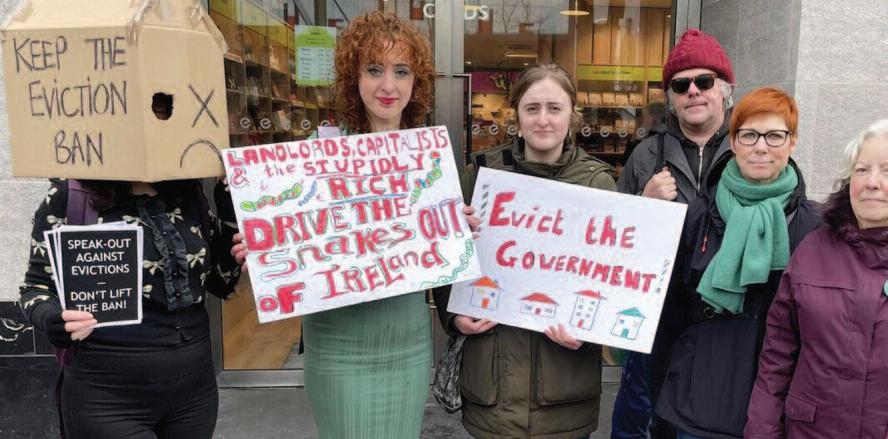 CARDS
KEEP THE
EVICTION
BAN
SPEAK-OUT
AGAINST
EVICTIONS
–
DON'T LIFT
THE BAN!
LANDLORDS, CAPITALISTS
& the STUPIDLY
RICH
DRIVE THE
SNAKES OUT
OF IRELAND
Evict the
GOVERNMENT!